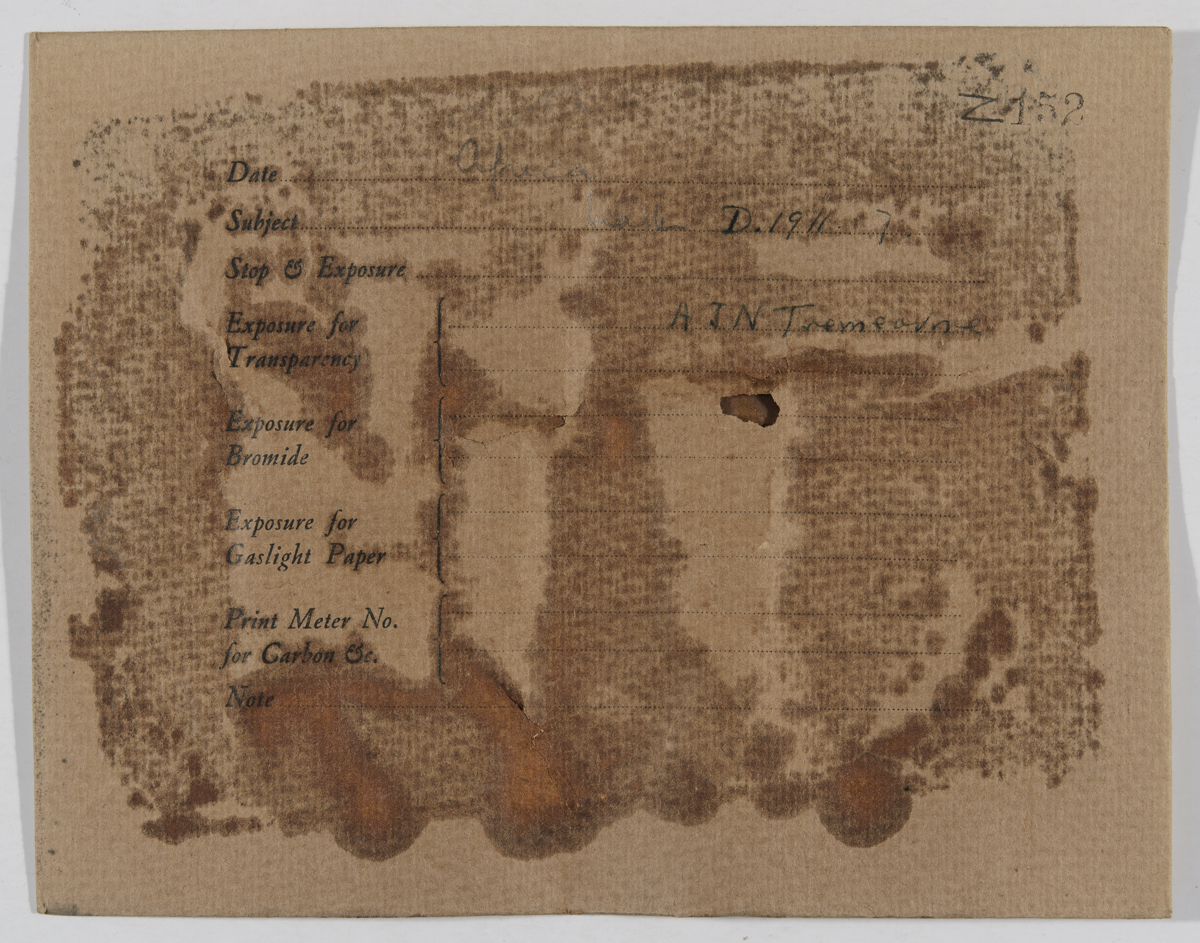 Z 152
Date Africa
Subject D.1911 7
Stop & Exposure
Exposure for A J N Tremearne
Transparency
Exposure for
Bromide
Exposure for
Gaslight Paper
Print Meter No.
for Carbon &c.
Note